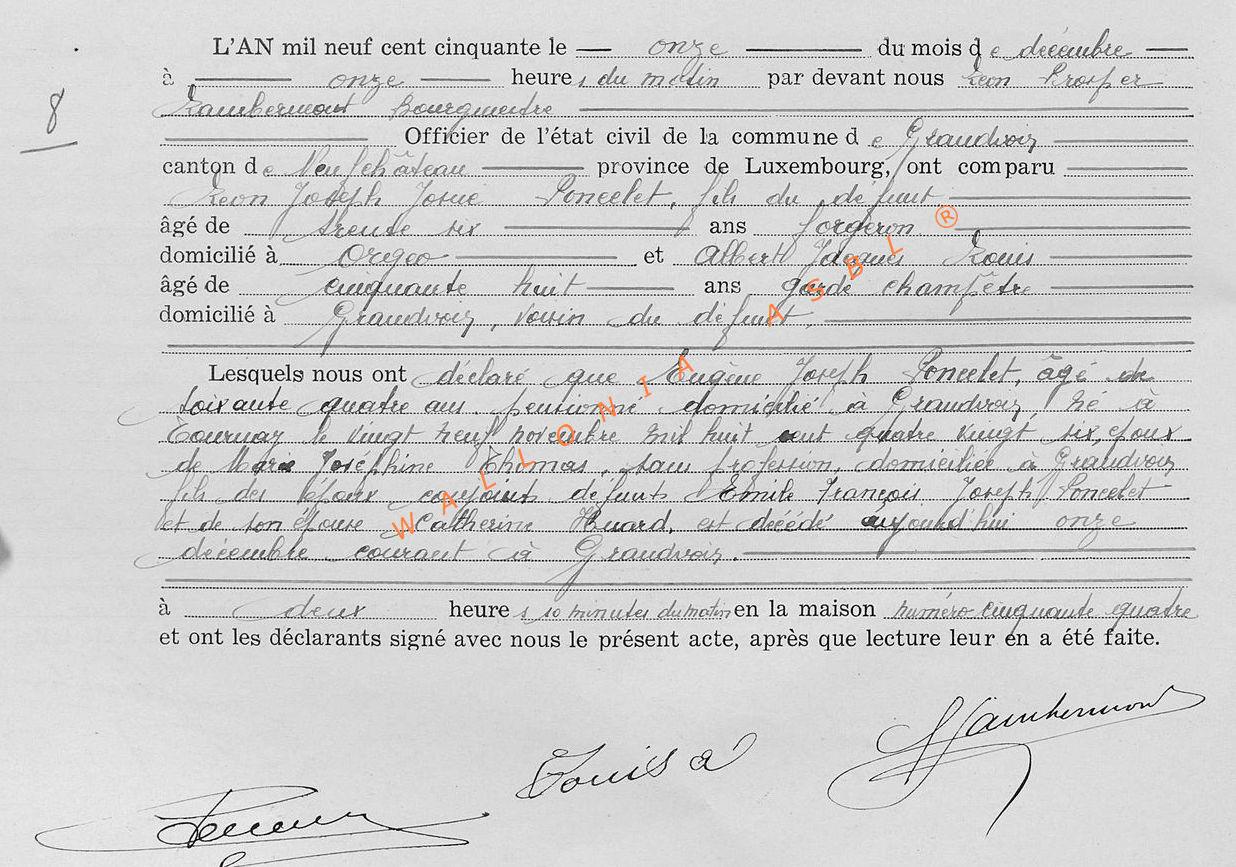 8
L'AN mil neuf cent cinquante le onze du mois de décembre
à onze heures du matin par devant nous Léon Prosper
Lambermont Bourgmestre
Officier de l'état civil de la commune de Grandvoir
canton de Neufchâteau province de Luxembourg, ont comparu
Léon Joseph Josué Poncelet, fils du défunt
âgé de trente six ans forgeron
domicilié à Orgeo et Albert Jacques Louis
âgé de cinquante huit ans garde champêtre
domicilié à Grandvoir, voisin du défunt,
Lesquels nous ont déclaré que Eugène Joseph Poncelet, âgé de
soixante quatre ans, pensionné domicilié à Grandvoir, né à
Tournay le vingt neuf novembre mil huit cent quatre vingt six, époux
de Marie Joséphine Thomas, sans profession, domiciliée à Grandvoir
fils des époux conjoints défunts Emile François Joseph Poncelet
et de son épouse Catherine Huard, est décédé aujourd'hui onze
décembre courant à Grandvoir.
à deux heures 10 minutes du matin en la maison numéro cinquante quatre
et ont les déclarants signé avec nous le présent acte, après que lecture leur en a été faite.
Lambermont
Louis a
WALLONIA ASBL ®